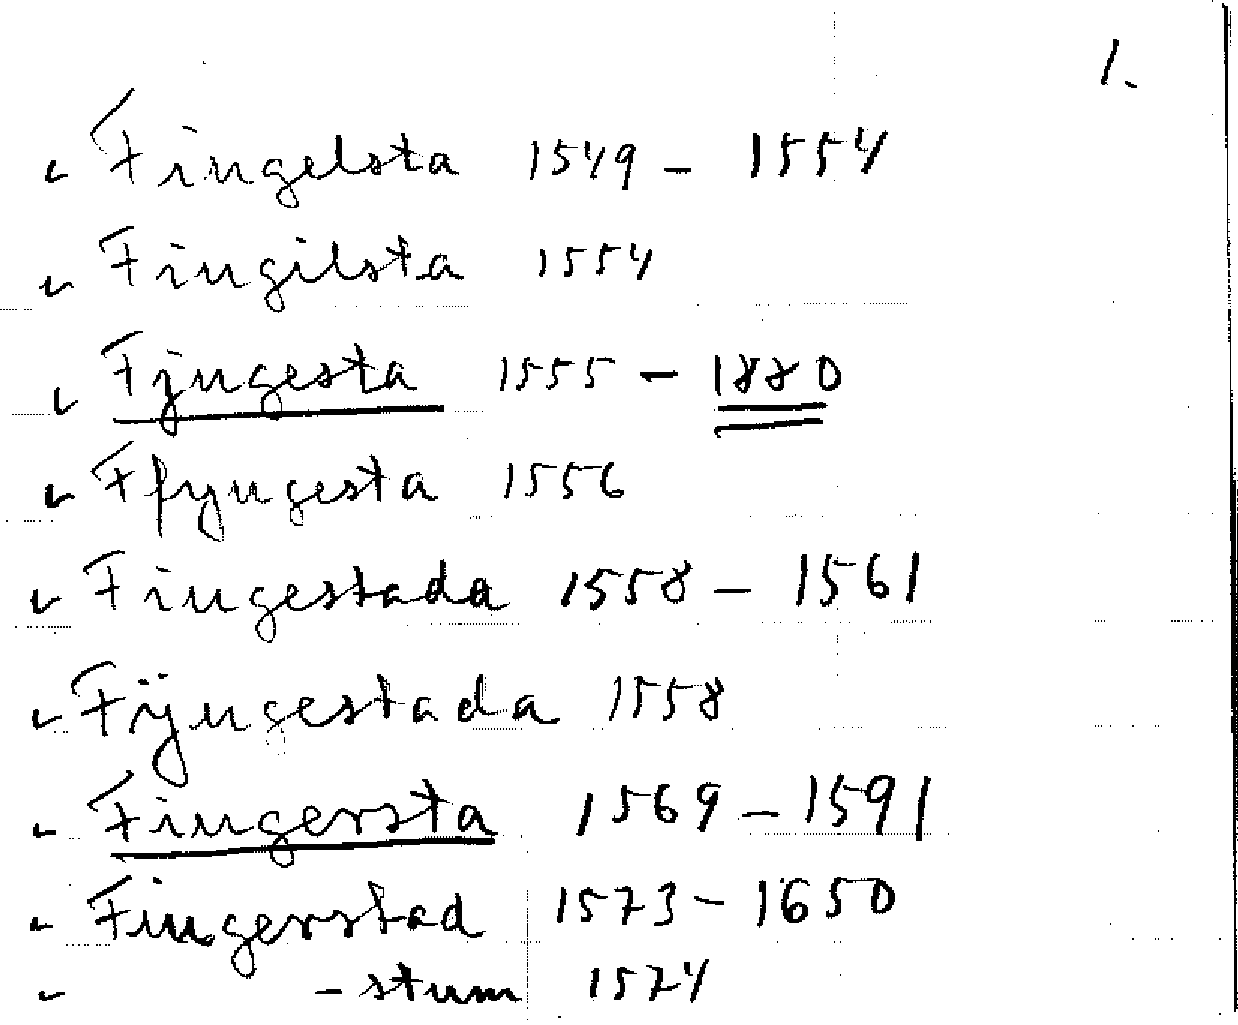 1.
Fingelsta 1549 - 1554
Fingilsta 1554
Fjngesta 1555 - 1880
Ffyngesta 1556
Fingestada 1558 - 1561
Fÿngestada 1558
Fingersta 1569 - 1591
Fingerstad 1573 - 1650
- stum 1574